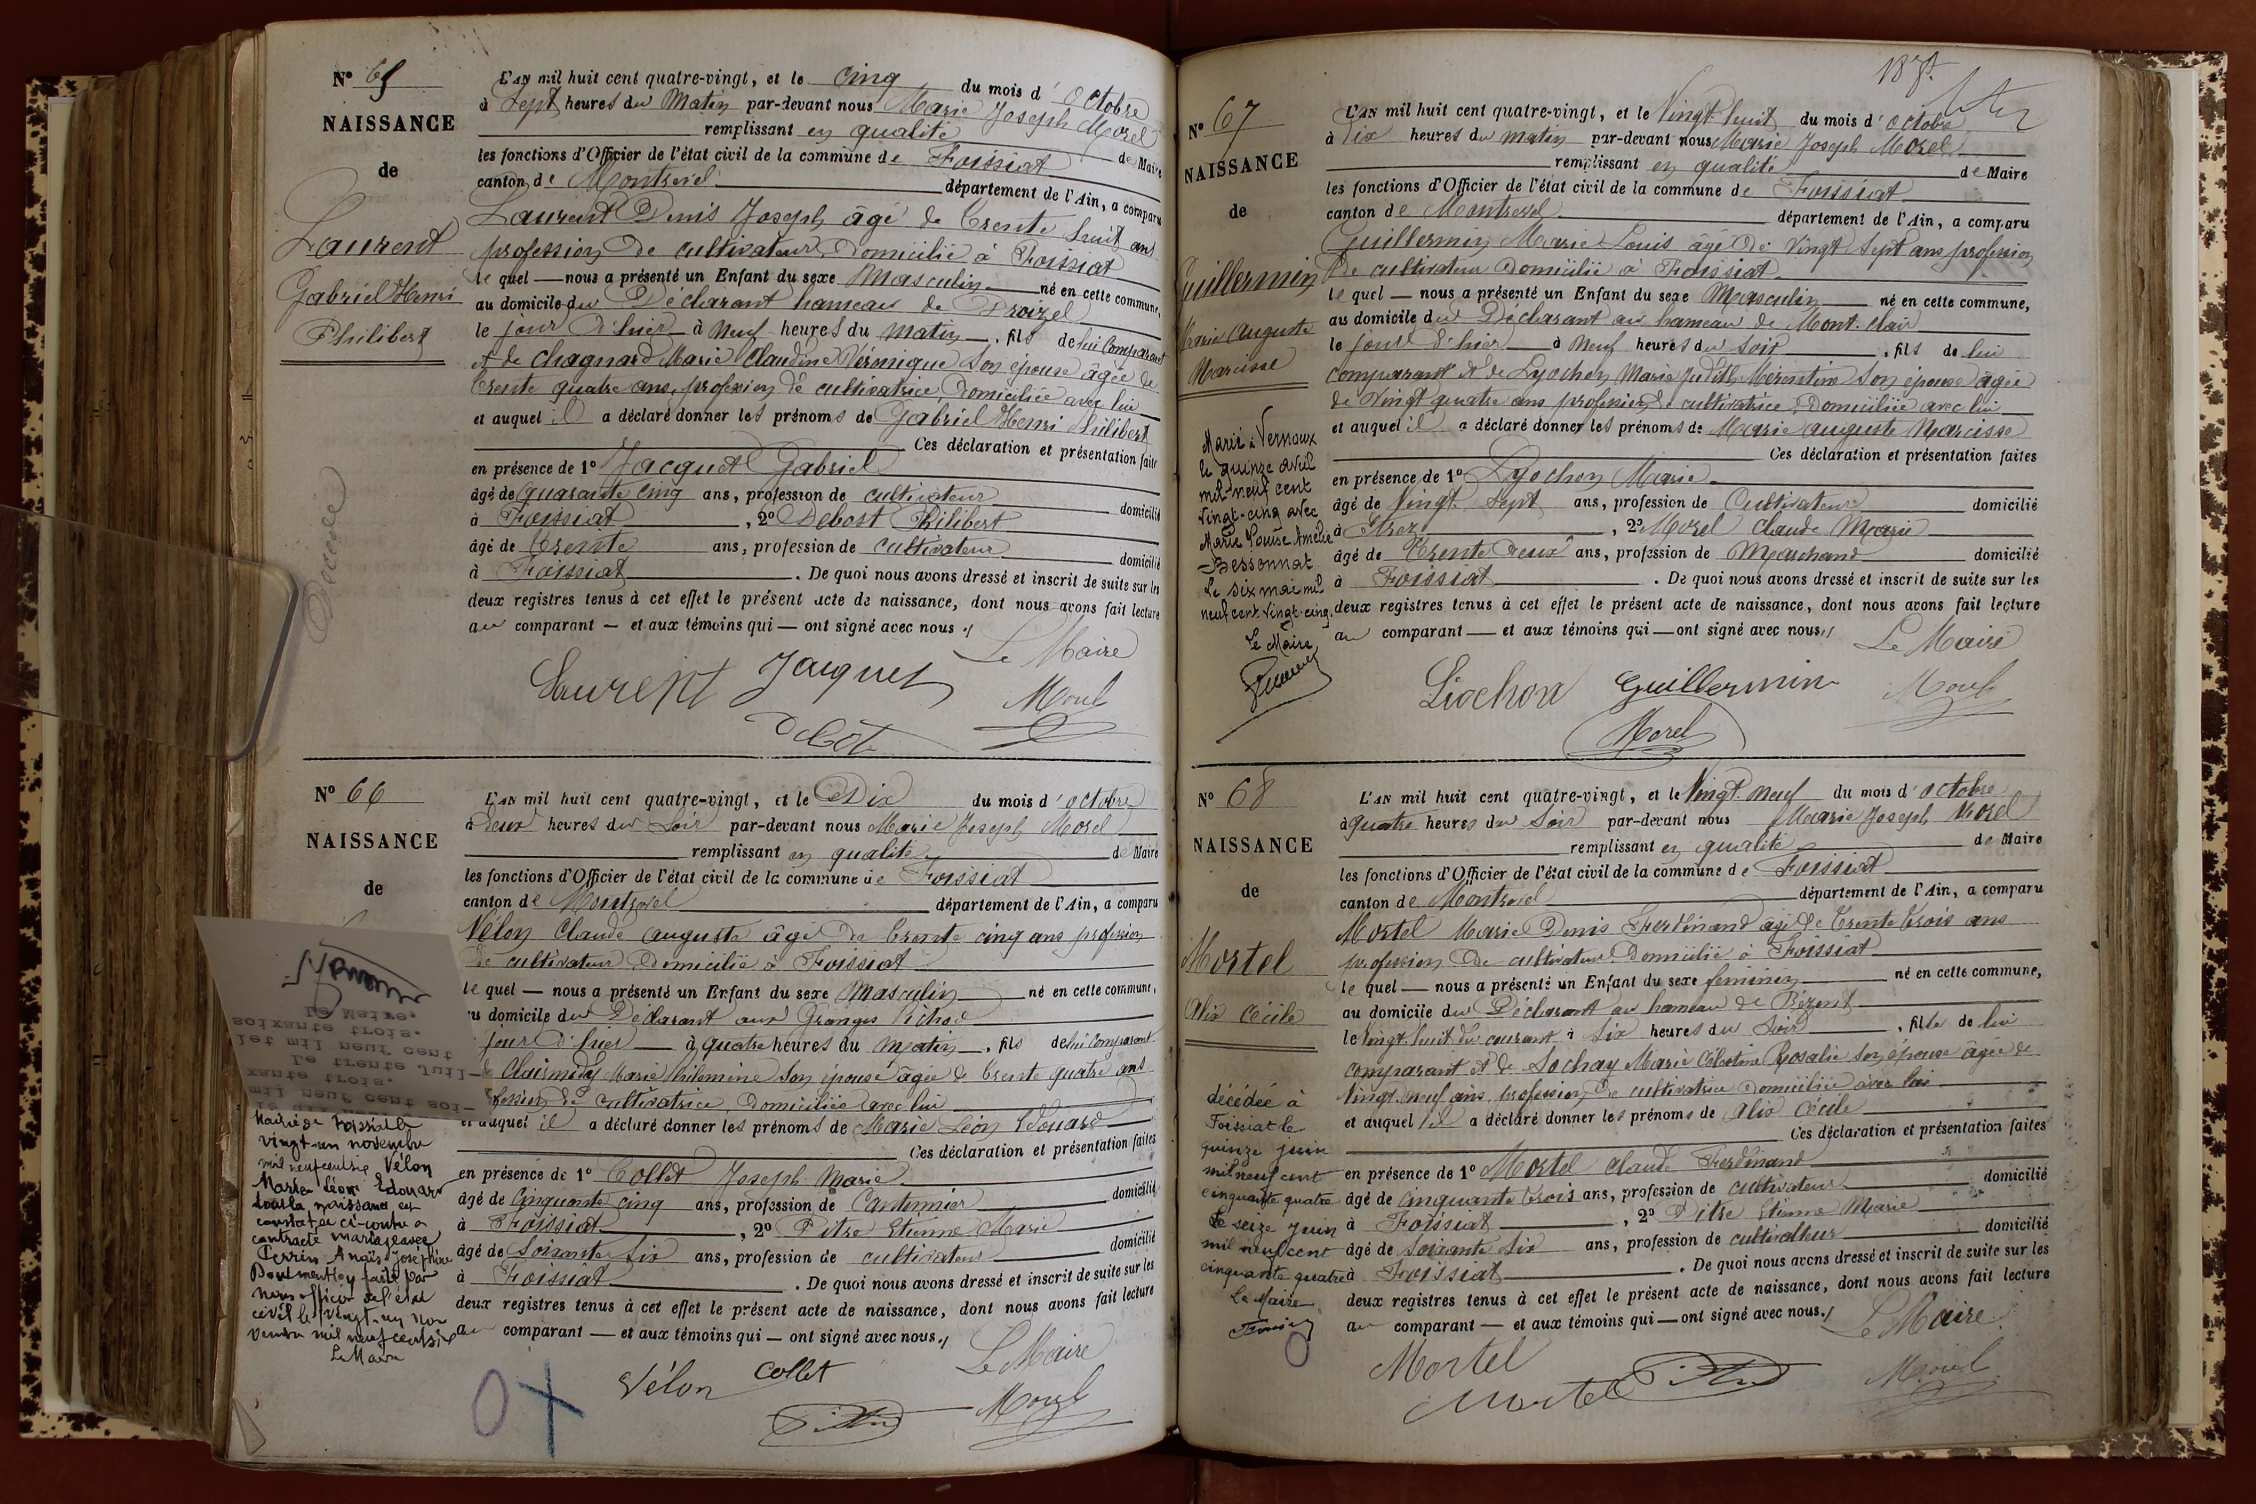 N° 65
NAISSANCE
de
Laurent
Gabriel Henri
Philibert
Décédé
L'AN mil huit cent quatre-vingt, et le cinq du mois d'octobre
à sept heures du matin par-devant nous Marie Joseph Morel
remplissant en qualité de Maire
les fonctions d'Officier de l'état civil de la commune de Foissiat
canton de Montrevel département de l'Ain, a comparu
Laurent Denis Joseph âgé de trente huit ans
profession de cultivateur domicilié à Foissiat
le quel — nous a présenté un Enfant du sexe Masculin né en cette commune,
au domicile du Déclarant hameau de
le jour d'hier à neuf heures du matin, fils de lui comparant
et de Chagnard Marie Claudine Véronique son épouse âgée de
trente quatre ans, profession de cultivatrice, domiciliée avec lui
et auquel il a déclaré donner les prénoms de Gabriel Henri Philibert
Ces déclaration et présentation faites
en présence de 1° Jacquet Gabriel
âgé de quarante cinq ans, profession de cultivateur domicilié
à Foissiat, 2° Debost Philibert
âgé de trente ans, profession de cultivateur domicilié
à Foissiat. De quoi nous avons dressé et inscrit de suite sur les
deux registres tenus à cet effet le présent acte de naissance, dont nous avons fait lecture
au comparant — et aux témoins qui — ont signé avec nous./
Le Maire
Laurent Jaquet Morel
N° 66
NAISSANCE
de
Le Maire,
soixante trois.
let mil neuf cent
Le trente Juil-
xante trois.
mil neuf cent soi-
Mairie de Foissiat le
vingt-un novembre
mil neuf cent six Vélon
Marie Léon Edouard
dont la naissance est
constatée ci-contre a
contracté mariage avec
Perrin Anaïs Joséphine
fait par
nous officier de l'état
civil le vingt-un nov
vembre mil neuf cent six
Le Maire
L'AN mil huit cent quatre-vingt, et le Dix du mois d'octobre
à deux heures du soir par-devant nous Marie Joseph Morel
remplissant en qualité de Maire
les fonctions d'Officier de l'état civil de la commune de Foissiat
canton de Montrevel département de l'Ain, a comparu
Vélon Claude Auguste âgé de trente cinq ans profession
de cultivateur, domicilié à Foissiat
le quel — nous a présenté un Enfant du sexe Masculin né en cette commune,
au domicile du Déclarant aux Granges
jour d'hier à quatre heures du matin, fils de lui comparant
Marie Philomène son épouse âgée de trente quatre ans
de cultivatrice, domiciliée avec lui
et auquel il a déclaré donner les prénoms de Marie Léon Edouard
Ces déclaration et présentation faites
en présence de 1° Collet Joseph Marie
âgé de cinquante cinq ans, profession de Cantonnier domicilié
à Foissiat, 2° Pitre Etienne Marie
âgé de soixante six ans, profession de cultivateur domicilié
à Foissiat. De quoi nous avons dressé et inscrit de suite sur les
deux registres tenus à cet effet le présent acte de naissance, dont nous avons fait lecture
au comparant — et aux témoins qui — ont signé avec nous./
Le Maire
Vélon Collet Morel
N° 67
NAISSANCE
de
Guillermin
Marie Auguste
Narcisse
Marié à Vernoux
le quinze avril
mil-neuf cent
vingt-cinq avec
Marie Louise Amélie
Bessonnat
Le six mai mil
neuf cent vingt-cinq.
Le Maire
L'AN mil huit cent quatre-vingt, et le vingt huit du mois d'octobre
à dix heures du matin par-devant nous Marie Joseph Morel
remplissant en qualité de Maire
les fonctions d'Officier de l'état civil de la commune de Foissiat
canton de Montrevel département de l'Ain, a comparu
Guillermin Marie Louis âgé de vingt sept ans profession
de cultivateur domicilié à Foissiat
le quel — nous a présenté un Enfant du sexe Masculin né en cette commune,
au domicile du Déclarant au hameau de Mont-clair
le jour d'hier à neuf heures du soir, fils de lui
comparant et de Lyochon Marie Judith son épouse âgée
de vingt quatre ans profession de cultivatrice, domiciliée avec lui
et auquel il a déclaré donner les prénoms de Marie auguste Narcisse
Ces déclaration et présentation faites
en présence de 1° Lyochon Marie
âgé de vingt sept ans, profession de Cultivateur domicilié
à Etrez, 2° Morel Claude Marie
âgé de trente deux ans, profession de Marchand domicilié
à Foissiat. De quoi nous avons dressé et inscrit de suite sur les
deux registres tenus à cet effet le présent acte de naissance, dont nous avons fait lecture
au comparant — et aux témoins qui — ont signé avec nous./
Le Maire
Liochon Guillermin Morel
Morel
N° 68
NAISSANCE
de
Mortel
Alix Cécile
décédée à
Foissiat le
quinze juin
mil neuf cent
cinquante quatre
Le seize juin
mil neuf cent
cinquante quatre
Le Maire
L'AN mil huit cent quatre-vingt, et le vingt-neuf du mois d'octobre
à quatre heures du soir par-devant nous Marie Joseph Morel
remplissant en qualité de Maire
les fonctions d'Officier de l'état civil de la commune de Foissiat
canton de Montrevel département de l'Ain, a comparu
Mortel Marie Denis Ferdinand âgé de trente trois ans
profession de cultivateur domicilié à Foissiat
le quel — nous a présenté un Enfant du sexe féminin né en cette commune,
au domicile du Déclarant au hameau de
le vingt huit du courant à six heures du soir, fille de lui
comparant et de Sochay Marie Célestine Rosalie son épouse âgée de
vingt neuf ans, profession de cultivatrice domiciliée avec lui
et auquel il a déclaré donner les prénoms de Alix Cécile
Ces déclaration et présentation faites
en présence de 1° Mortel Claude Ferdinand
âgé de cinquante trois ans, profession de cultivateur domicilié
à Foissiat, 2° Pitre Etienne Marie
âgé de soixante six ans, profession de cultivateur domicilié
à Foissiat. De quoi nous avons dressé et inscrit de suite sur les
deux registres tenus à cet effet le présent acte de naissance, dont nous avons fait lecture
au comparant — et aux témoins qui — ont signé avec nous./
Le Maire
Mortel
Mortel Morel